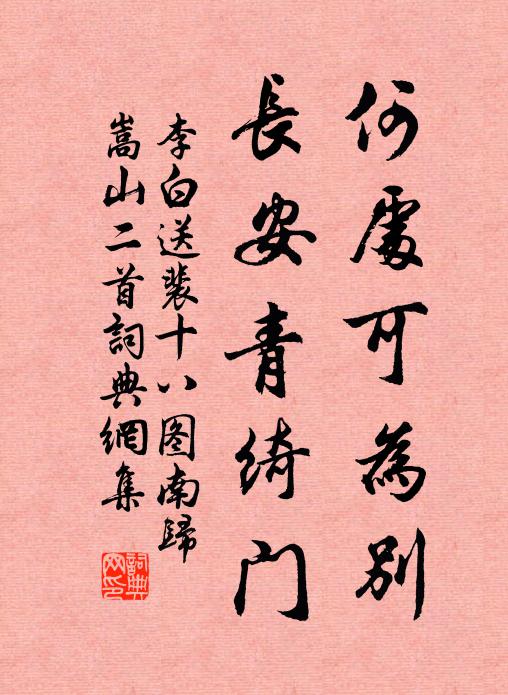 何處可為別
長安青綺門
李白送裴十八图南歸
嵩山二首詞典網集
詞典网印